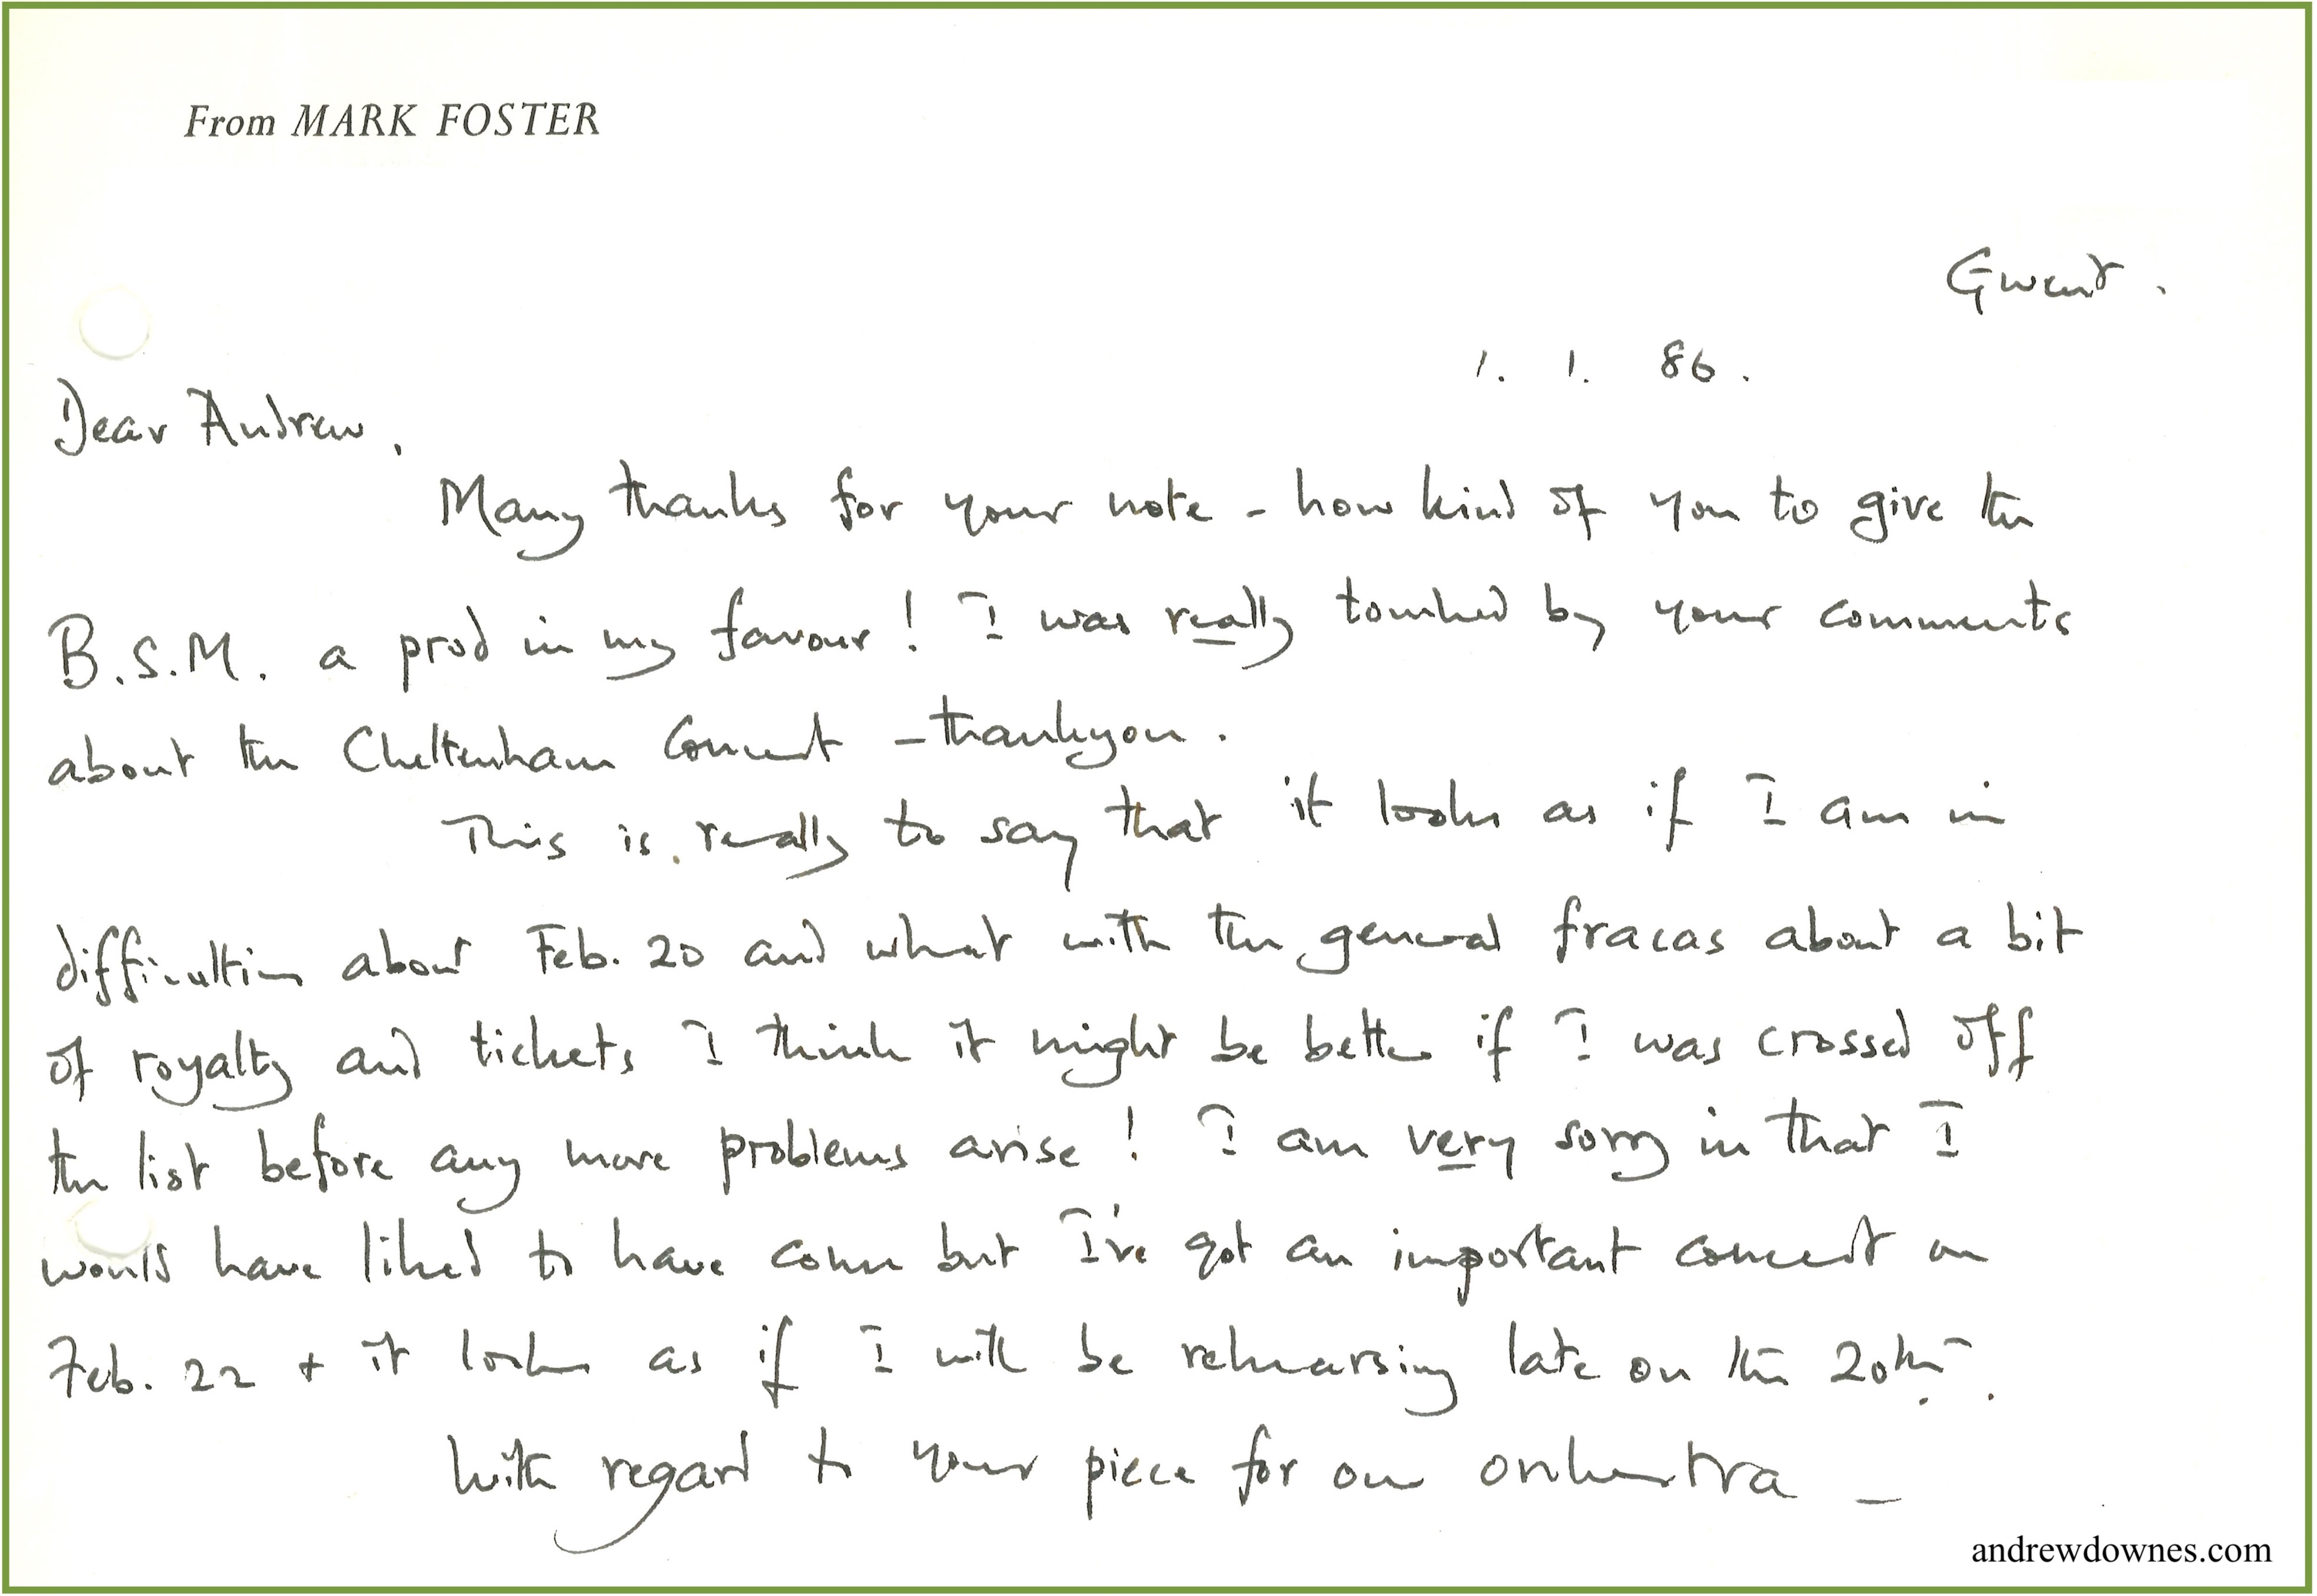 From MARK FOSTER
Gwent.
1. 1. 86.
Dear Andrew,
Many thanks for your note - how kind of you to give the
B.S.M. a prod in my favour! I was really touched by your comments
about the Cheltenham Concert - thankyou.
This is really to say that it looks as if I am in
difficulties about Feb. 20 and what with the general fracas about a bit
of royalty and tickets I think it might be better if I was crossed off
the list before any more problems arise! I am very sorry in that I
would have liked to have come but I've got an important concert on
Feb. 22 + it looks as if I will be rehearsing late on the 20th.
With regard to your piece for our orchestra -
andrewdownes.com